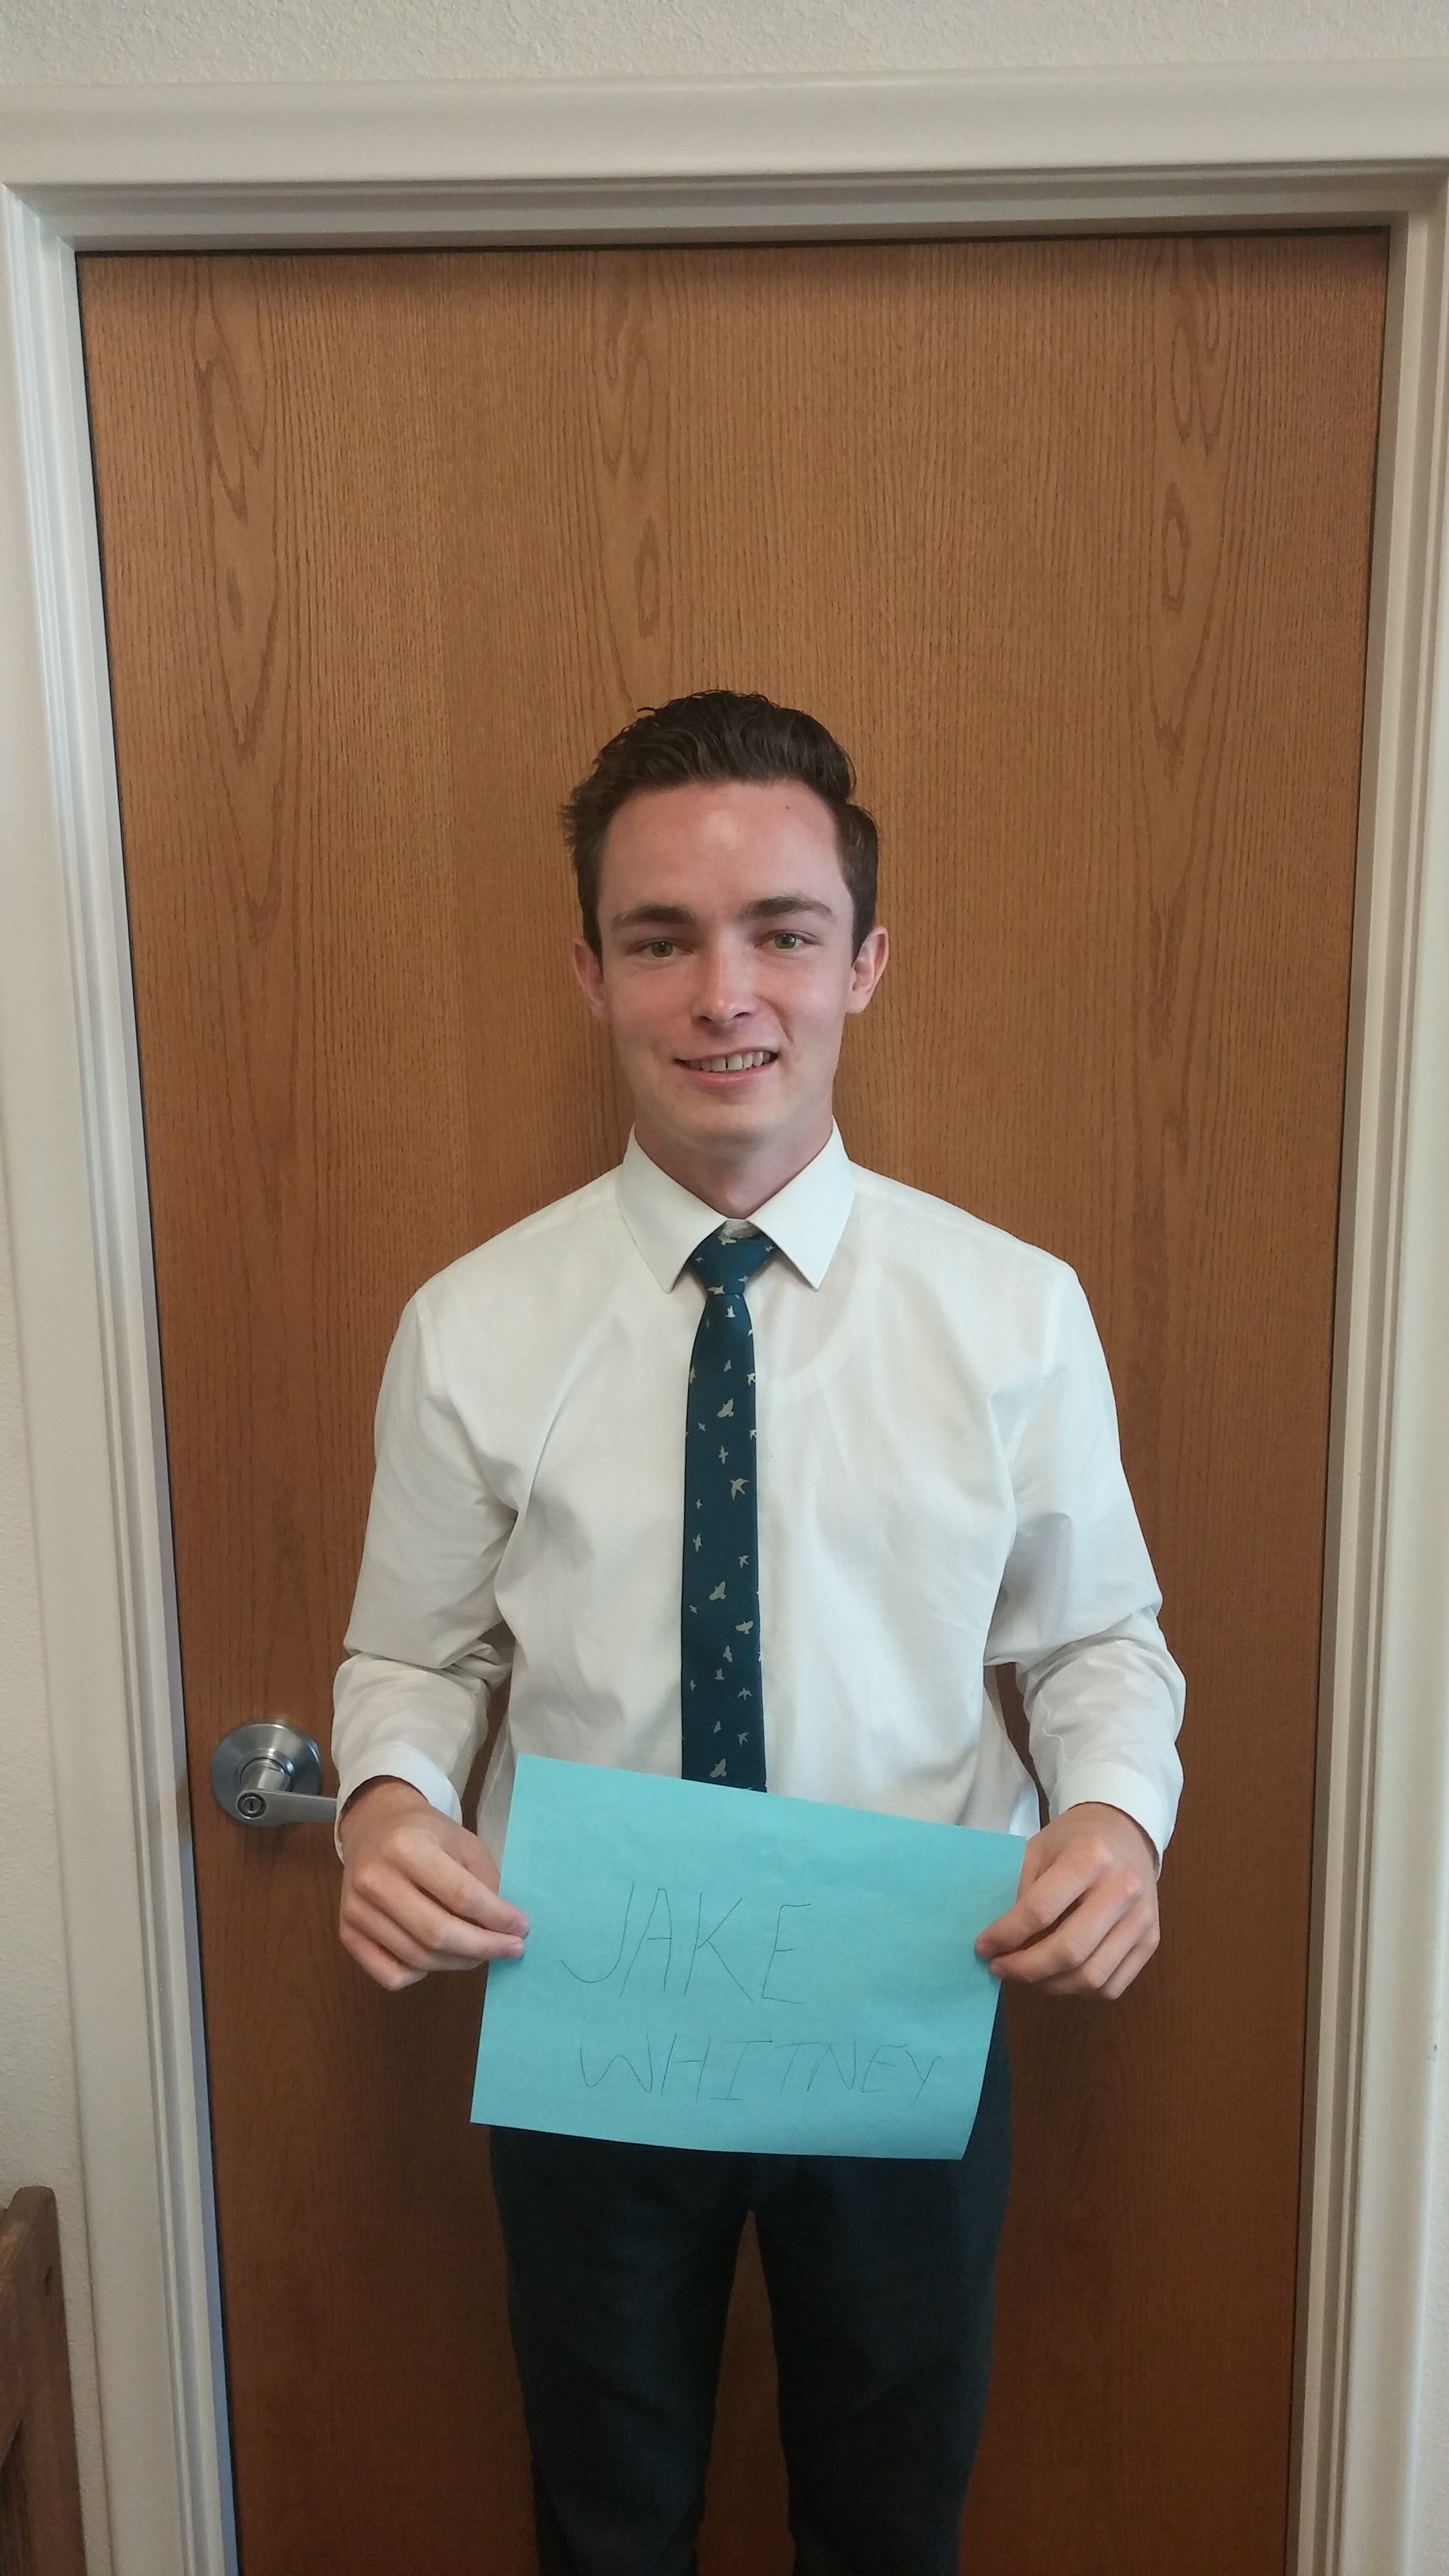 JAKE
WHITNEY